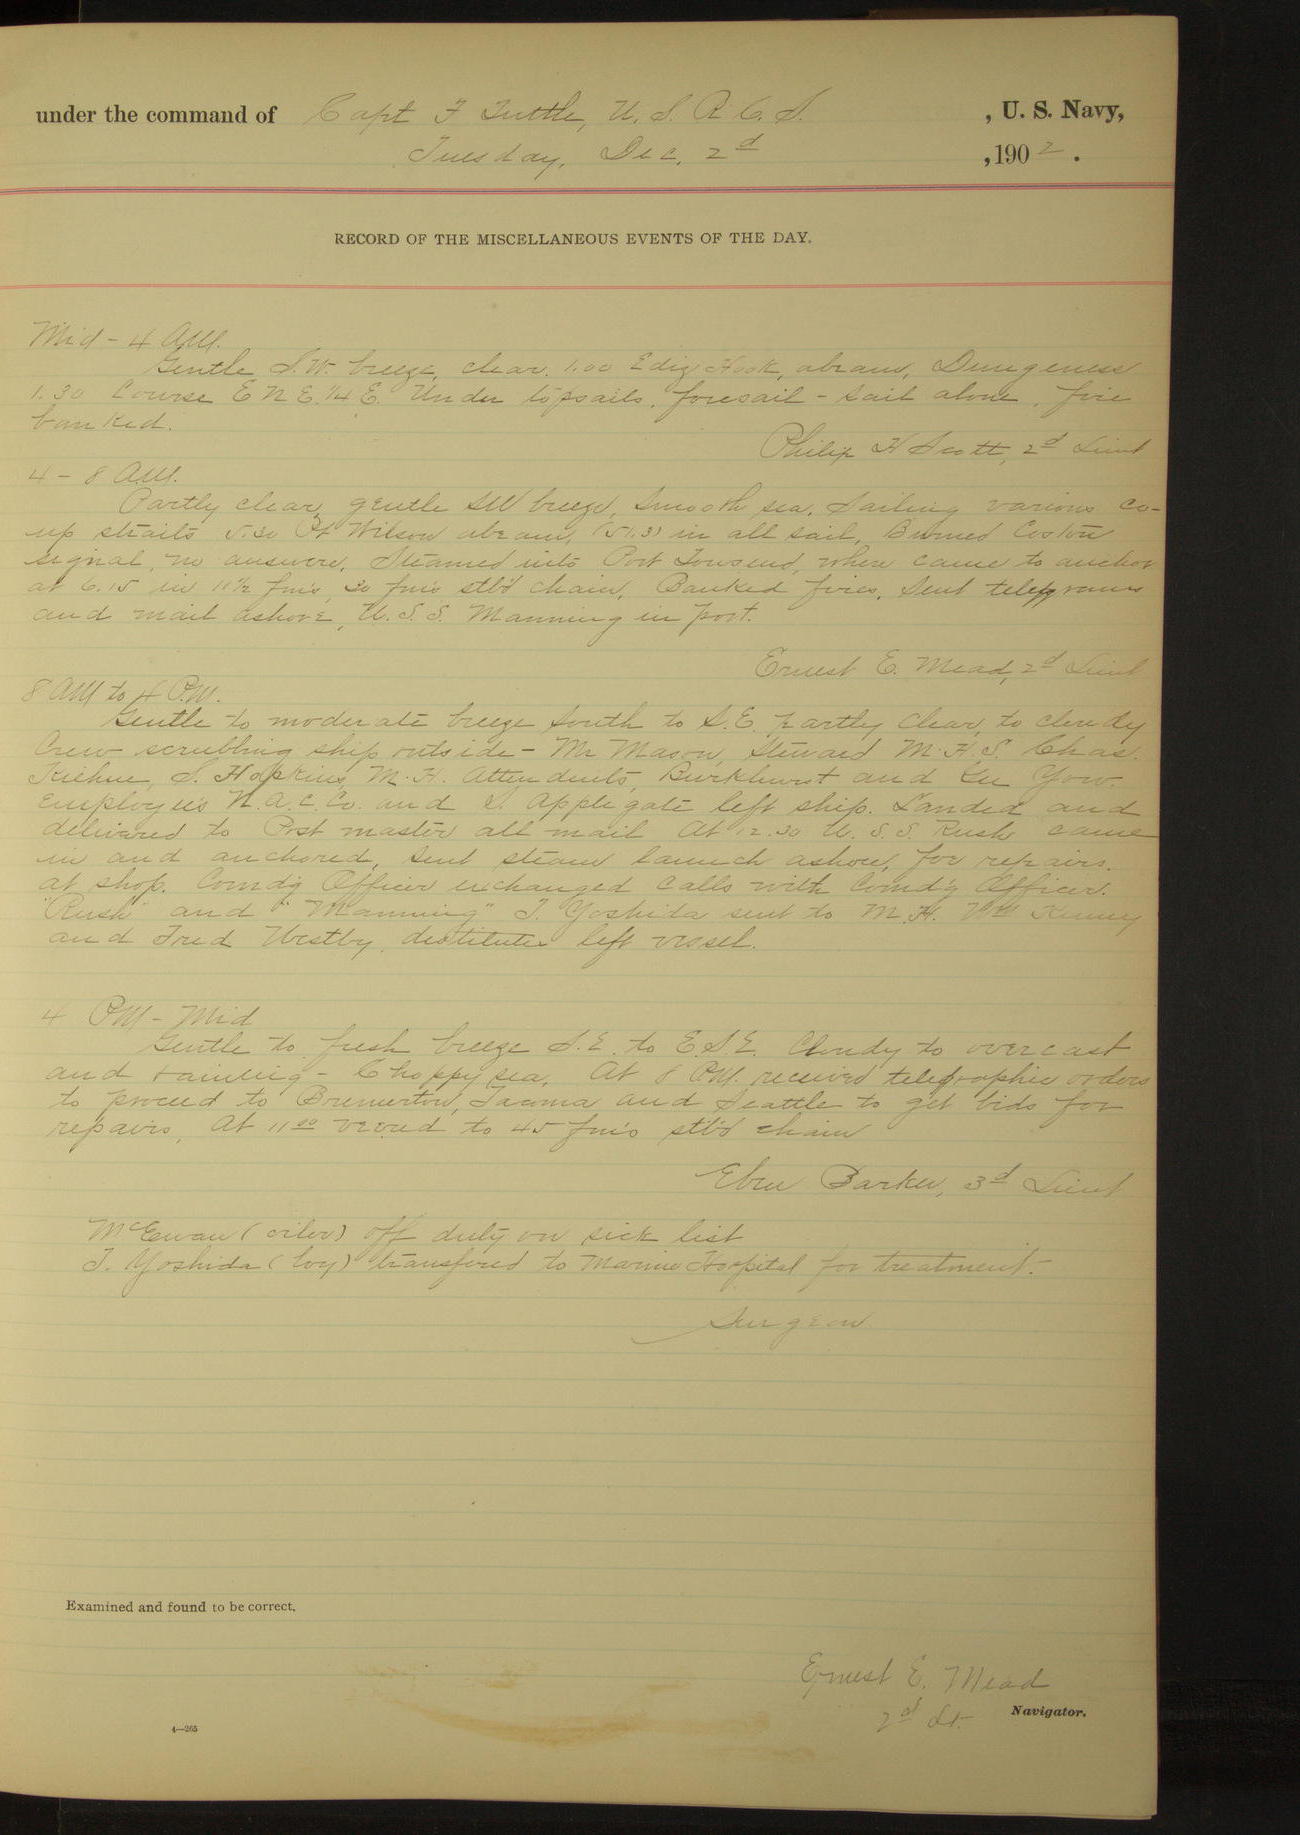 under the command of Capt F Tuttle, U. S. R. C. S. , U. S. Navy,
Tuesday, Dec. 2d , 1902 .
RECORD OF THE MISCELLANEOUS EVENTS OF THE DAY.
Mid - 4 AM.
Gentle S.W. breeze, clear. 1.00 Ediz Hook, abeam, Dungeness
1.30 Course E N E. 1/4 E. Under topsails, foresail - sail alone, fire
banked.
Philip H Scott, 2d Lieut
4 - 8 AM.
Partly clear, gentle SW breeze, smooth sea. Sailing various co-
up straits 5.30 Pt Wilson abeam, (51.3) in all sail, Burned Coston
signal, no answere. Steamed into Port Townsend, where came to anchor
at 6.15 in 11 1/2 fm's, 30 fm's stb'd chain, Banked fires, Sent telegrams
and mail ashore, U.S.S. Manning in port.
Ernest E. Mead, 2d Lieut
8 AM to 4 P.M.
Gentle to moderate breeze South to S.E. partly clear, to cloudy
Crew scrubbing ship outside - Mr Mason, Steward M.H.S. Chas.
Kiehne, S. Hopkins, M.H. Attendents, Burkhurst and Yow.
employees N.A.C.Co. and S. Applegate left ship. Landed and
delivered to Post master all mail At 12.30 U.S.S. Rush came
in and anchored, sent steam launch ashore, for repairs.
at shop. Comd'g Officer exchanged calls with Comd'g Officer.
"Rush" and "Manning" T. Yoshida sent to M.H. Wm Kenney
and Fred Westby, destitutes left vessel.
4 PM - Mid
Gentle to fresh breeze S.E. to E.S.E. Cloudy to overcast
and raining - Choppy sea, At 8 P.M. received telegraphic orders
to proceed to Bremerton, Tacoma and Seattle to get bids for
repairs, At 11 00 veered to 45 fm's stb'd chain
Eben Barker, 3d Lieut
McEwan (oiler) off duty on sick list
T. Yoshida (boy) transfered to Marine Hospital for treatment.
Surgeon
Examined and found to be correct.
Ernest E. Mead
2d Lt. Navigator.
4—265